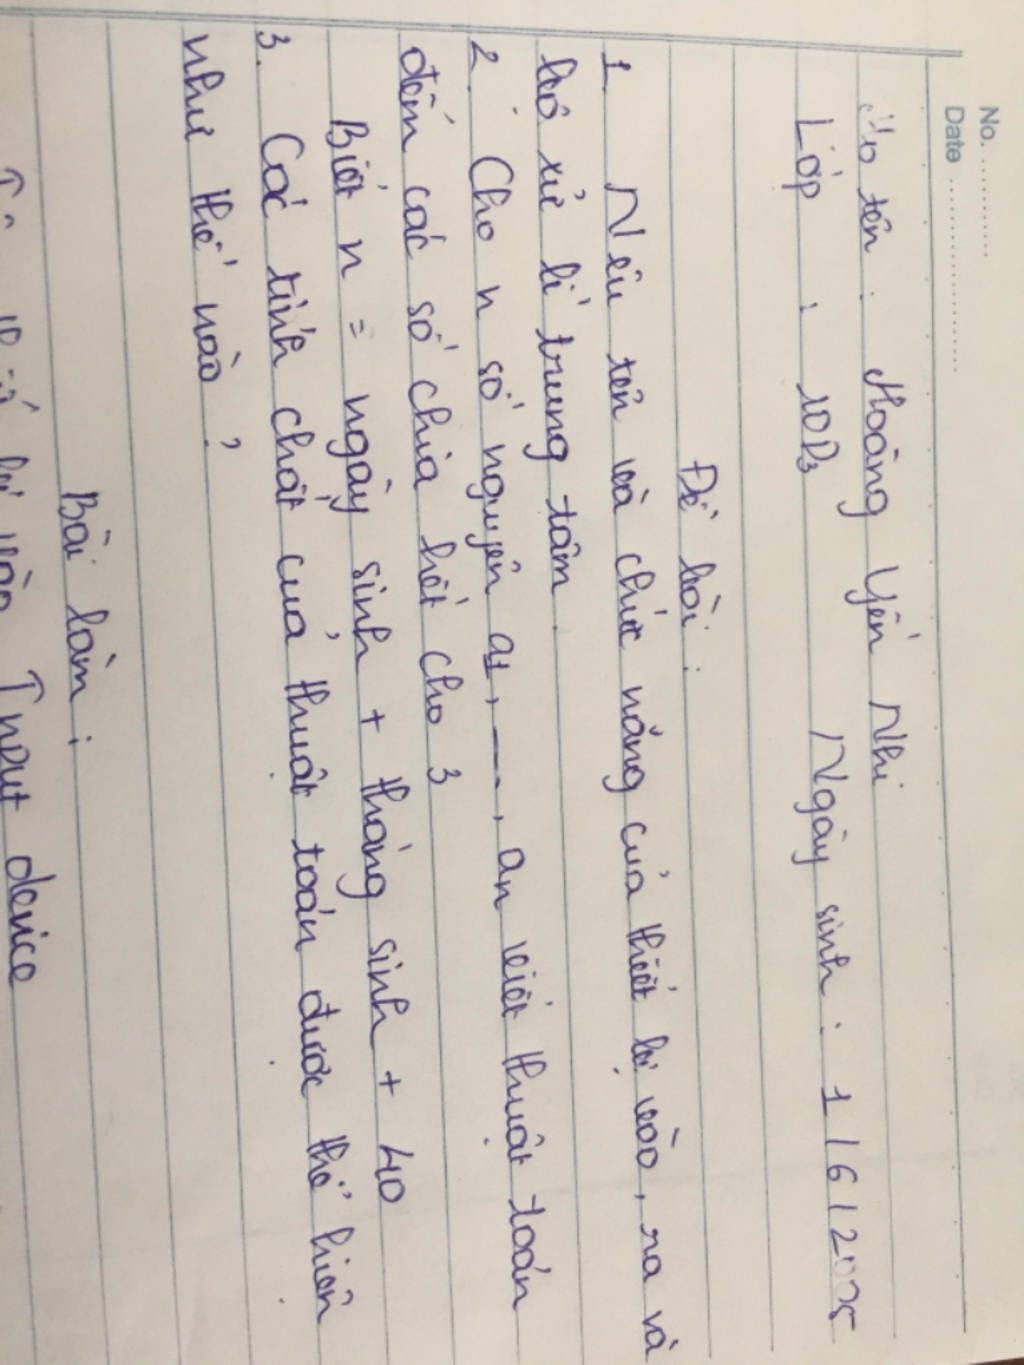 No. ............
Date ....................
Họ tên : Hoàng Yến Nhi
Lớp : 10P3 Ngày sinh : 1/6/2005
Đề bài :
1. Nêu tên và chức năng của thiết bị vào, ra và
bộ xử lí trung tâm.
2. Cho n số nguyên a1, ---, an viết thuật toán
đếm các số chia hết cho 3
Biết n = ngày sinh + tháng sinh + 40
3. Các tính chất của thuật toán được thể hiện
như thế nào ?
Bài làm :
bị vào Input device